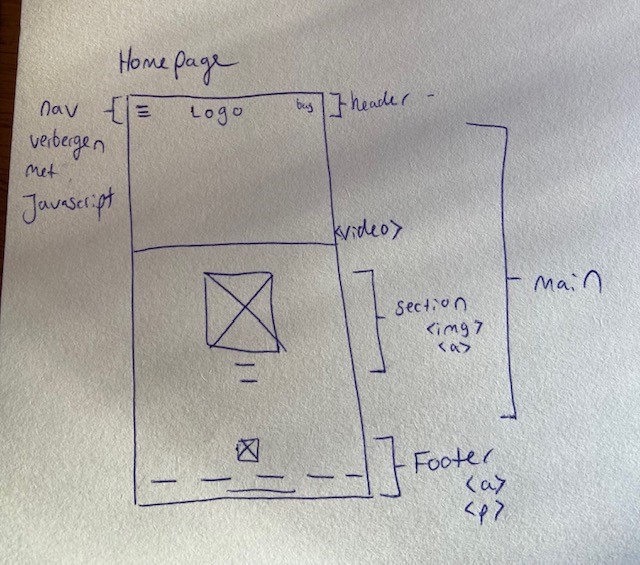 Homepage
nav
verbergen
met
Javascript
Logo
bag
header
<video>
section
<img>
<a>
main
Footer
<a>
<p>